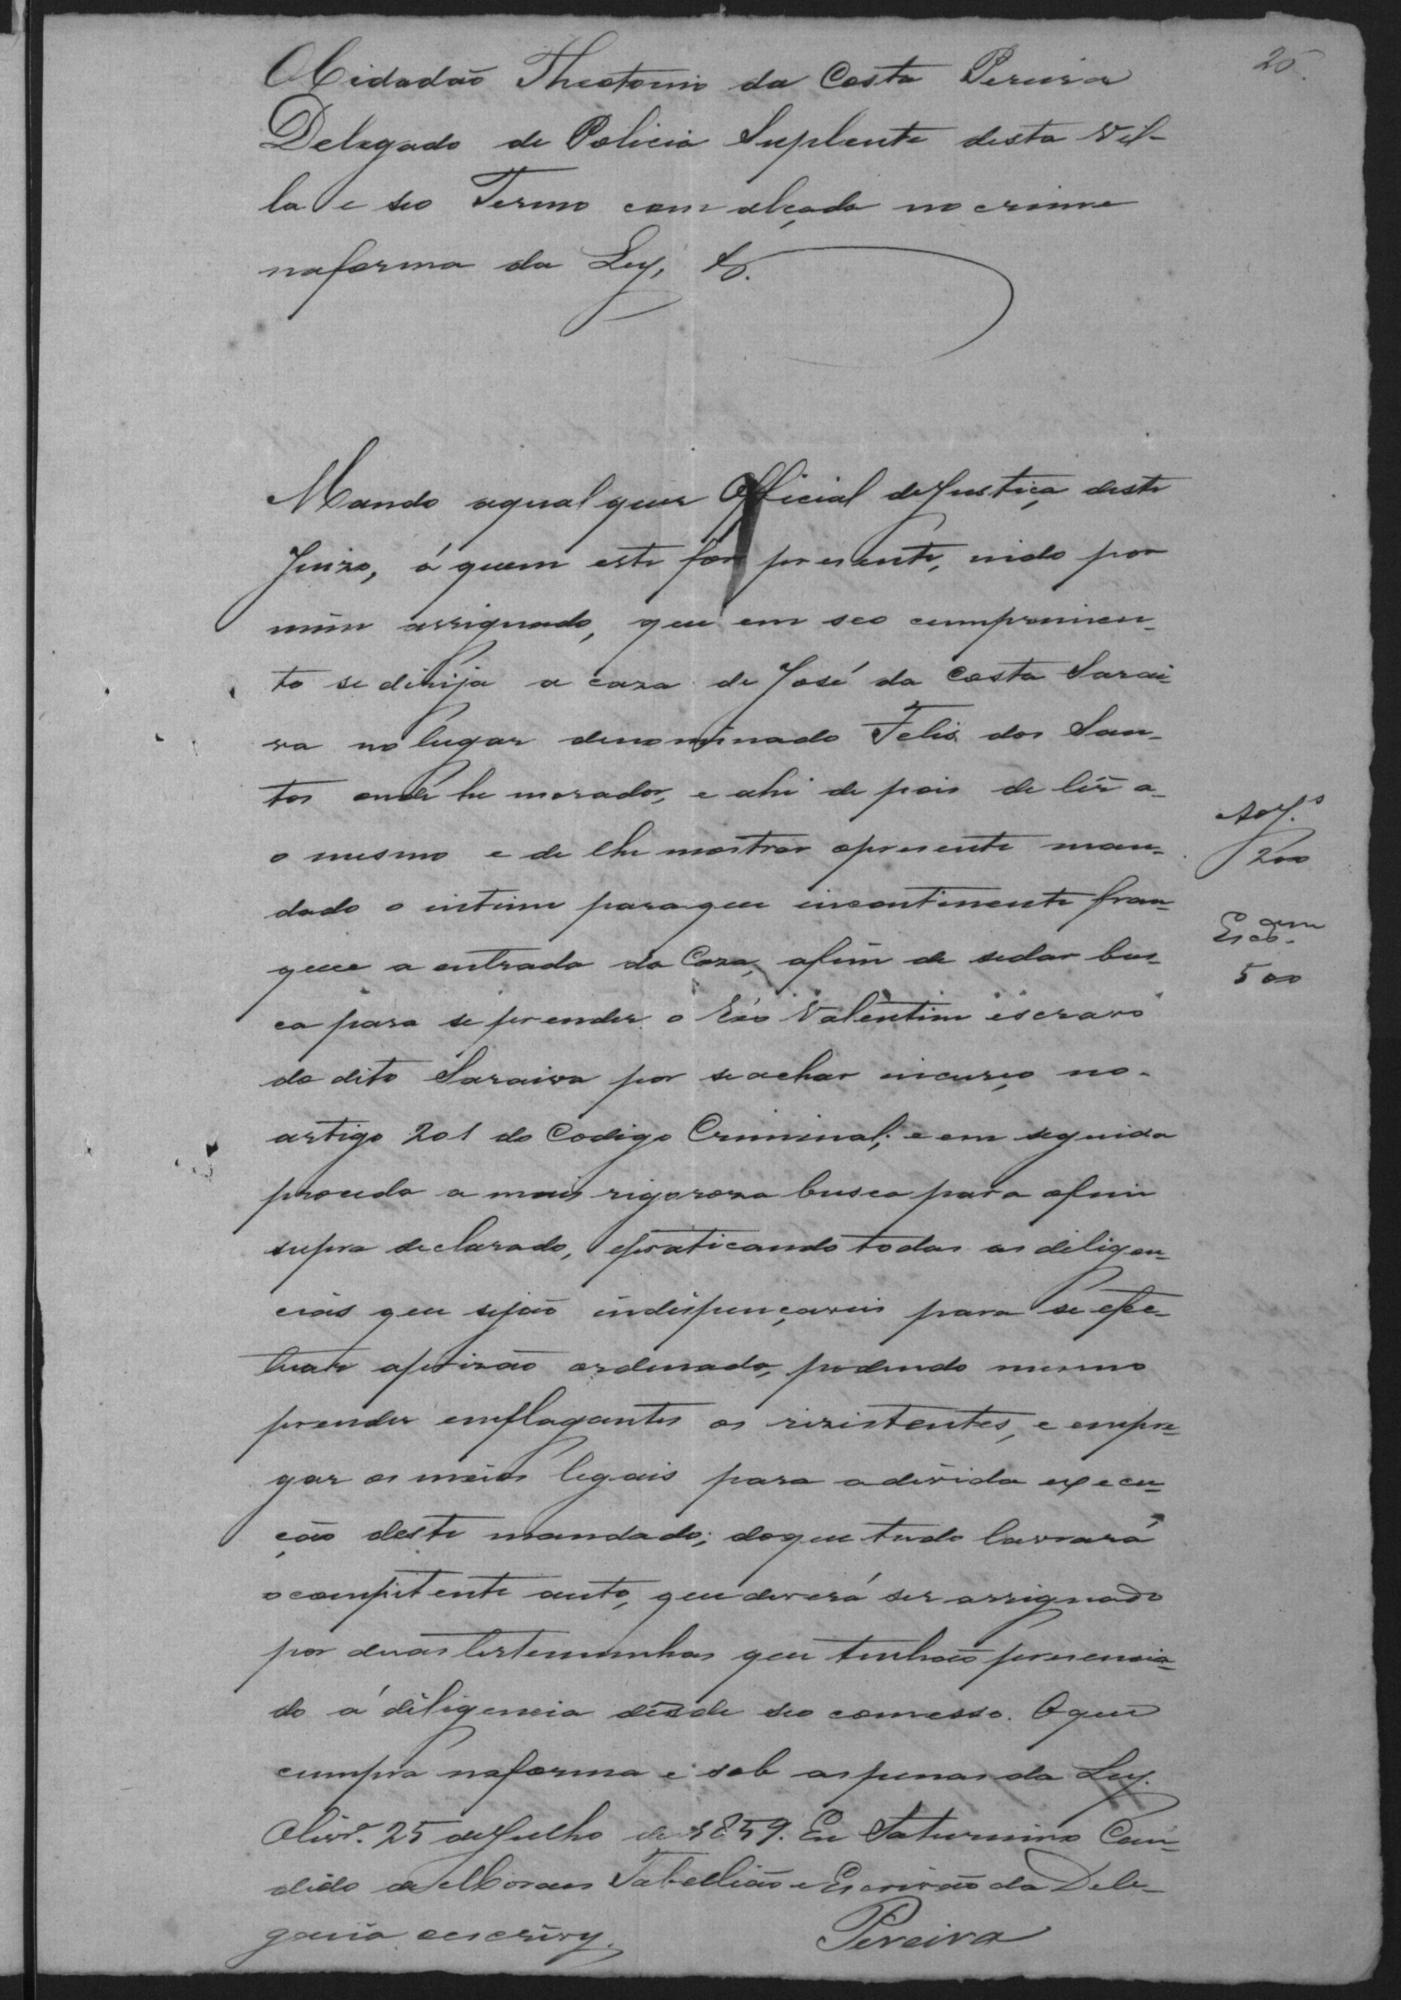 25
O Cidadão Theotonio da Costa Pereira
Delegado de Policia Suplente desta Vil-
la e seo Termo com alçada no crime
naforma da Ley, &.
Mando aqualquer Official deJustiça deste
Juizo, á quem este for presente, indo por
mim assignado, que em seo cumprimen-
to se dirija a caza de José da Costa Sarai-
va no lugar denominado Felis dos San-
tos onde he morador, e ahi de pois de lêr a-
o mesmo e de lhe mostrar opresente man-
dado o intime paraque incontinente fran-
quee a entrada da Caza, afim de sedar bus-
ca para se prender o Réo Valentim escravo
do dito Saraiva por seachar incurço no-
artigo 201 do Codigo Criminal; e em seguida
proceda a mais rigoroza busca para ofim
supra declarado, epraticando todas as diligen-
cias que sejão indispençaveis para se efec-
tuar aprizão ordenada, podendo mesmo
prender emflagantes os rezistentes, e empre-
gar os meios legais para adevida execu-
ção deste mandado; doque tudo lavrará
ocompitente auto, que deverá ser assignado
por duas testemunhas que tenhão presencia-
do á diligencia desde seo comesso. Oque
cumpra naforma e sob aspenas da Ley.
Olivr.ª 25 deJulho de 1859. Eu Saturnino Can-
dido de Moraes Tabellião e Escrivão da Dele-
gacia oescrivy.
Pereira
200
500